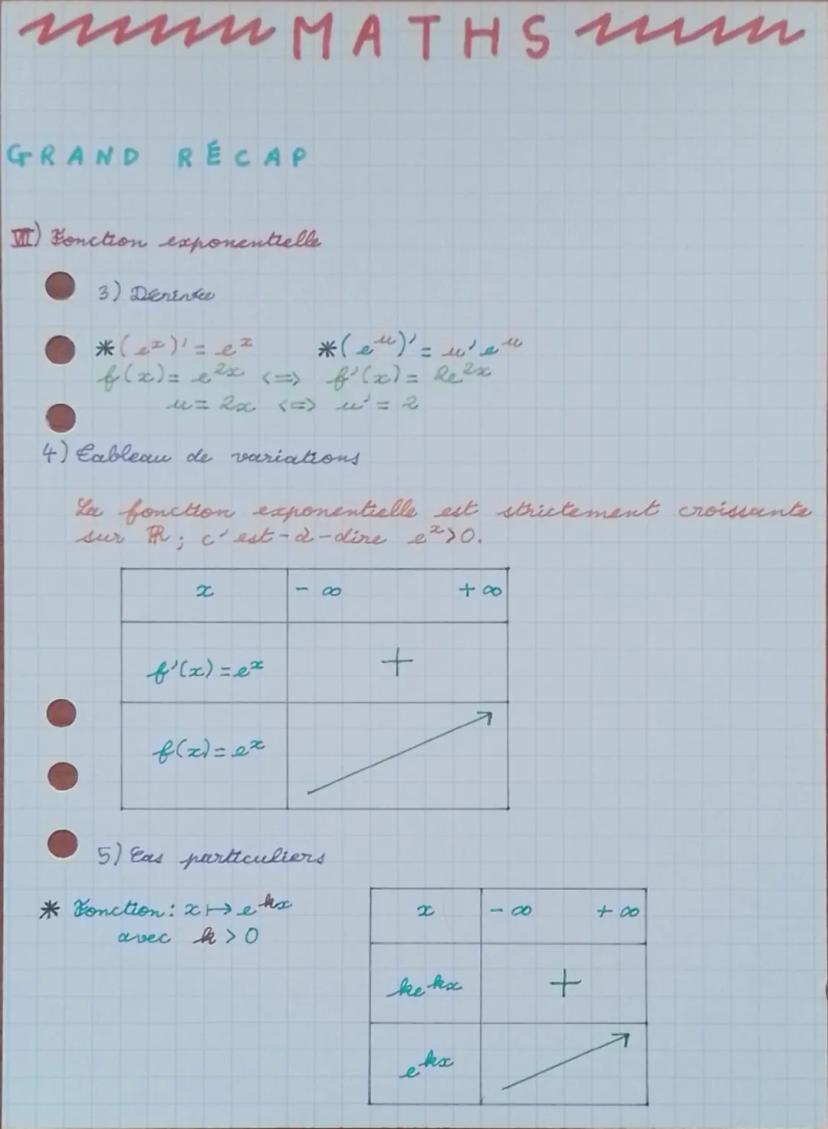 MATHS
GRAND RÉCAP
VII) Fonction exponentielle
3) Dérivée
*(e^x)' = e^x *(e^u)' = u'e^u
f(x) = e^2x <=> f'(x) = 2e^2x
u = 2x <=> u' = 2
4) Tableau de variations
La fonction exponentielle est strictement croissante
sur ℝ ; c'est-à-dire e^x>0.
x - ∞ + ∞
f'(x) = e^x +
f(x) = e^x
5) Cas particuliers
* Fonction : x ↦ e^kx
avec k > 0
x - ∞ + ∞
ke^kx +
e^kx